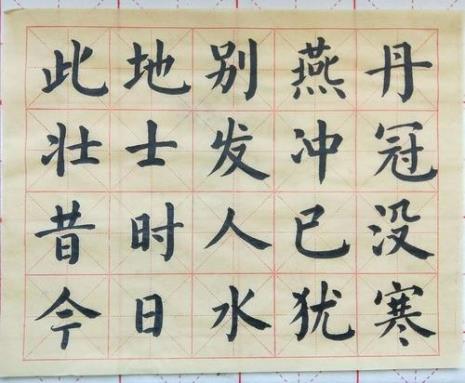 此地别燕丹
壮士发冲冠
昔时人已没
今日水犹寒